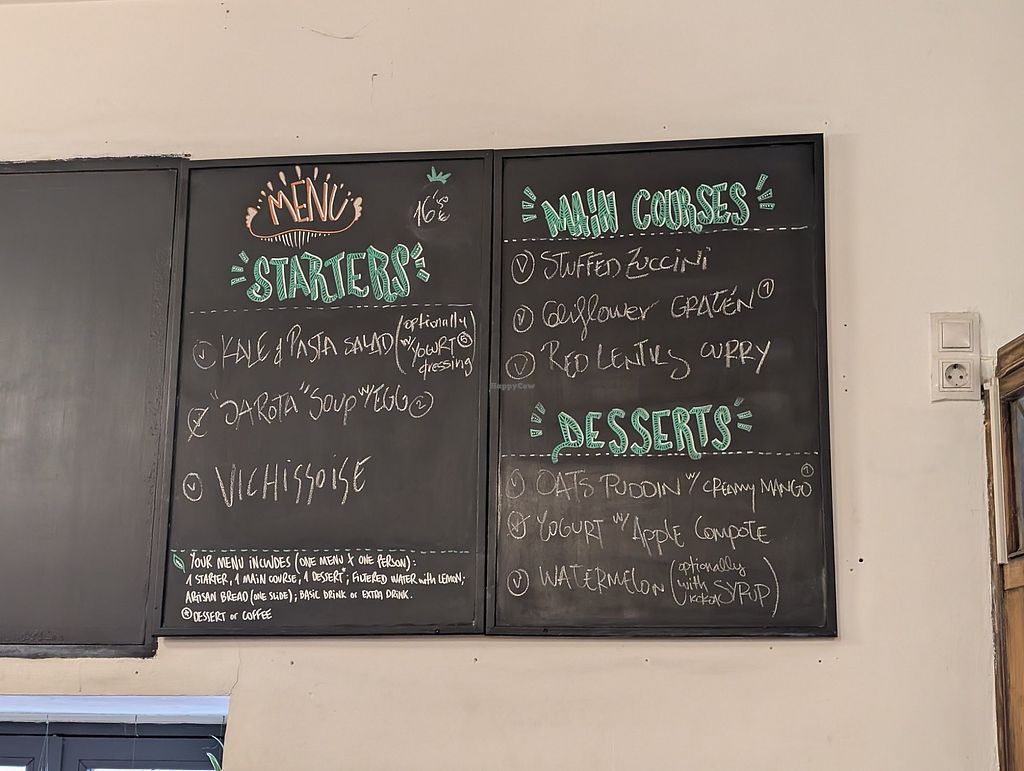 MENU
16'50€
STARTERS
Ⓥ KALE & PASTA SALAD (optionally w/ YOGURT dressing)
"JAROTA" SOUP w/ EGG ②
Ⓥ VICHISSOISE
YOUR MENU INCLUDES (ONE MENU X ONE PERSON):
1 STARTER, 1 MAIN COURSE, 1 DESSERT*; FILTERED WATER with LEMON;
ARTISAN BREAD (ONE SLIDE); BASIC DRINK or EXTRA DRINK.
* DESSERT or COFFEE
MAIN COURSES
Ⓥ STUFFED ZUCCINI
Ⓥ Califlower GRATÉN ①
Ⓥ RED LENTILS CURRY
HappyCow
DESSERTS
Ⓥ OATS PUDDIN w/ CREAMY MANGO ①
Ⓥ YOGURT w/ Apple Compote
Ⓥ WATERMELON (optionally with KOKOA SYRUP)